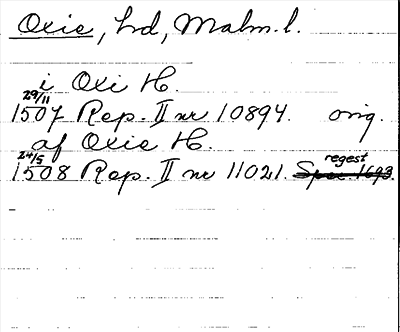 Oxie, hd, Malm.l.
i Oxi H.
29/11
1507 Rep. II nr 10894. orig.
af Oxie H.
24/5 regest
1508 Rep. II nr 11021. Spec. 1693.